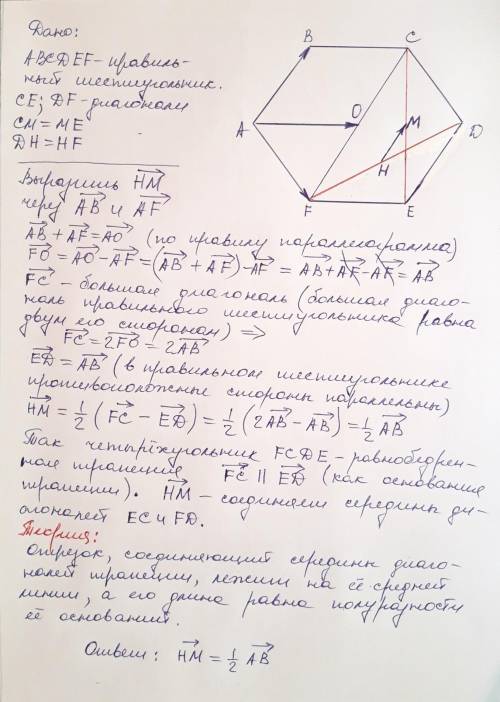 Дано:
ABCDEF – правиль-
ный шестиугольник.
CE; DF – диагонали
CM = ME
DH = HF
B
C
A
O
M
D
H
F
E
Выразить HM→
через AB→ и AF→
AB→ + AF→ = AO→ (по правилу параллелограмма)
FO→ = AO→ – AF→ = (AB→ + AF→) – AF→ = AB→ + AF→ – AF→ = AB→
FC→ – большая диагональ (большая диаго-
наль правильного шестиугольника равна
двум его сторонам) ⇒
FC→ = 2FO→ = 2AB→
ED→ = AB→ (в правильном шестиугольнике
противоположные стороны параллельны)
HM→ = 1/2 (FC→ – ED→) = 1/2 (2AB→ – AB→) = 1/2 AB→
Так четырёхугольник FCDE – равнобедрен-
ная трапеция FC→ || ED→ (как основания
трапеции). HM→ – соединяет середины ди-
агоналей EC и FD.
Теория:
Отрезок, соединяющий середины диаго-
налей трапеции, лежит на её средней
линии, а его длина равна полуразности
её оснований.
Ответ: HM→ = 1/2 AB→